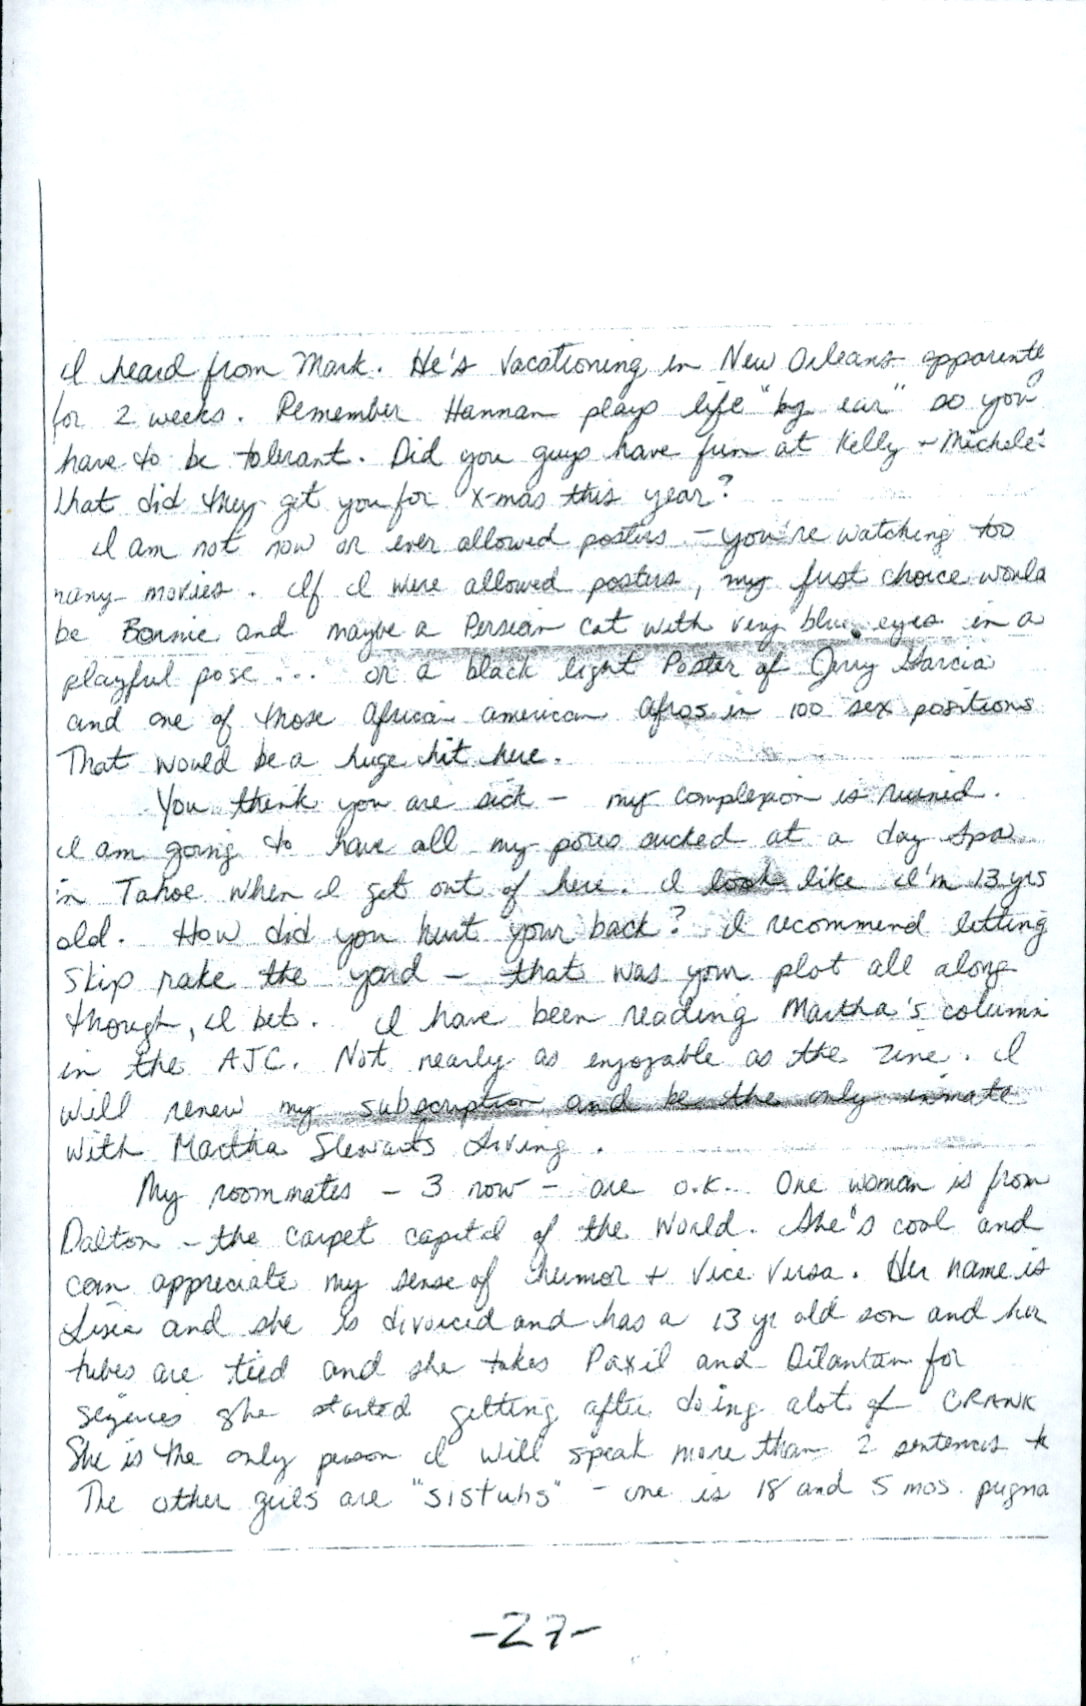 I heard from Mark. He's vacationing in New Orleans apparentl
for 2 weeks. Remember Hannan plays life "by ear" so you
have to be tolerant. Did you guys have fun at Kelly + Michele'
hat did they get you for X-mas this year?
I am not now or ever allowed posters - you're watching too
many movies. If I were allowed posters, my first choice would
be Bonnie and maybe a Persian cat with very blue eyes in a
playful pose... or a black light Poster of Jerry Garcia
and one of those African american afros in 100 sex positions
That would be a huge hit here.
You think you are sick - my complexion is ruined.
I am going to have all my pores sucked at a day spa
in Tahoe when I get out of here. I look like I'm 13 yrs
old. How did you hurt your back? I recommend letting
Skip rake the yard - that was your plot all along
though, I bet. I have been reading Martha's column
in the AJC. Not nearly as enjoyable as the zine. I
will renew my subscription and be the only inmate
with Martha Stewarts Living.
My roommates - 3 now - are o.k. One woman is from
Dalton - the carpet capital of the world. She's cool and
can appreciate my sense of humor + vice versa. Her name is
Lisa and she is divorced and has a 13 yr old son and her
tubes are tied and she takes Paxil and Dilantan for
seizures she started getting after doing alot of CRANK
She is the only person I will speak more than 2 sentences t
The other girls are "sistuhs" - one is 18 and 5 mos. pregna
-27-